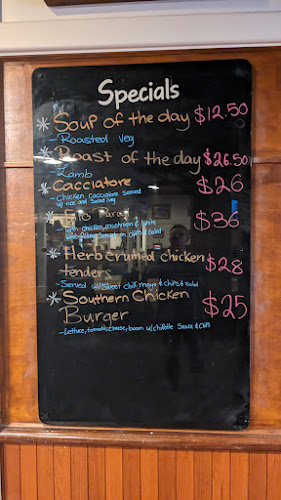 Specials
* Soup of the day $12.50
- Roasted Veg
* Roast of the day $26.50
- Lamb
* Cacciatore $26
- Chicken Cacciatore Served
w/ rice and Salad/veg
* $36
with chicken, mushroom &
chips & Salad
* Herb crumed chicken $28
tenders
- Served w/ Sweet chilli mayo & chips & salad
* Southern Chicken $25
Burger
- Lettuce, tomato, cheese, bacon w/ chipotle Sauce & chips